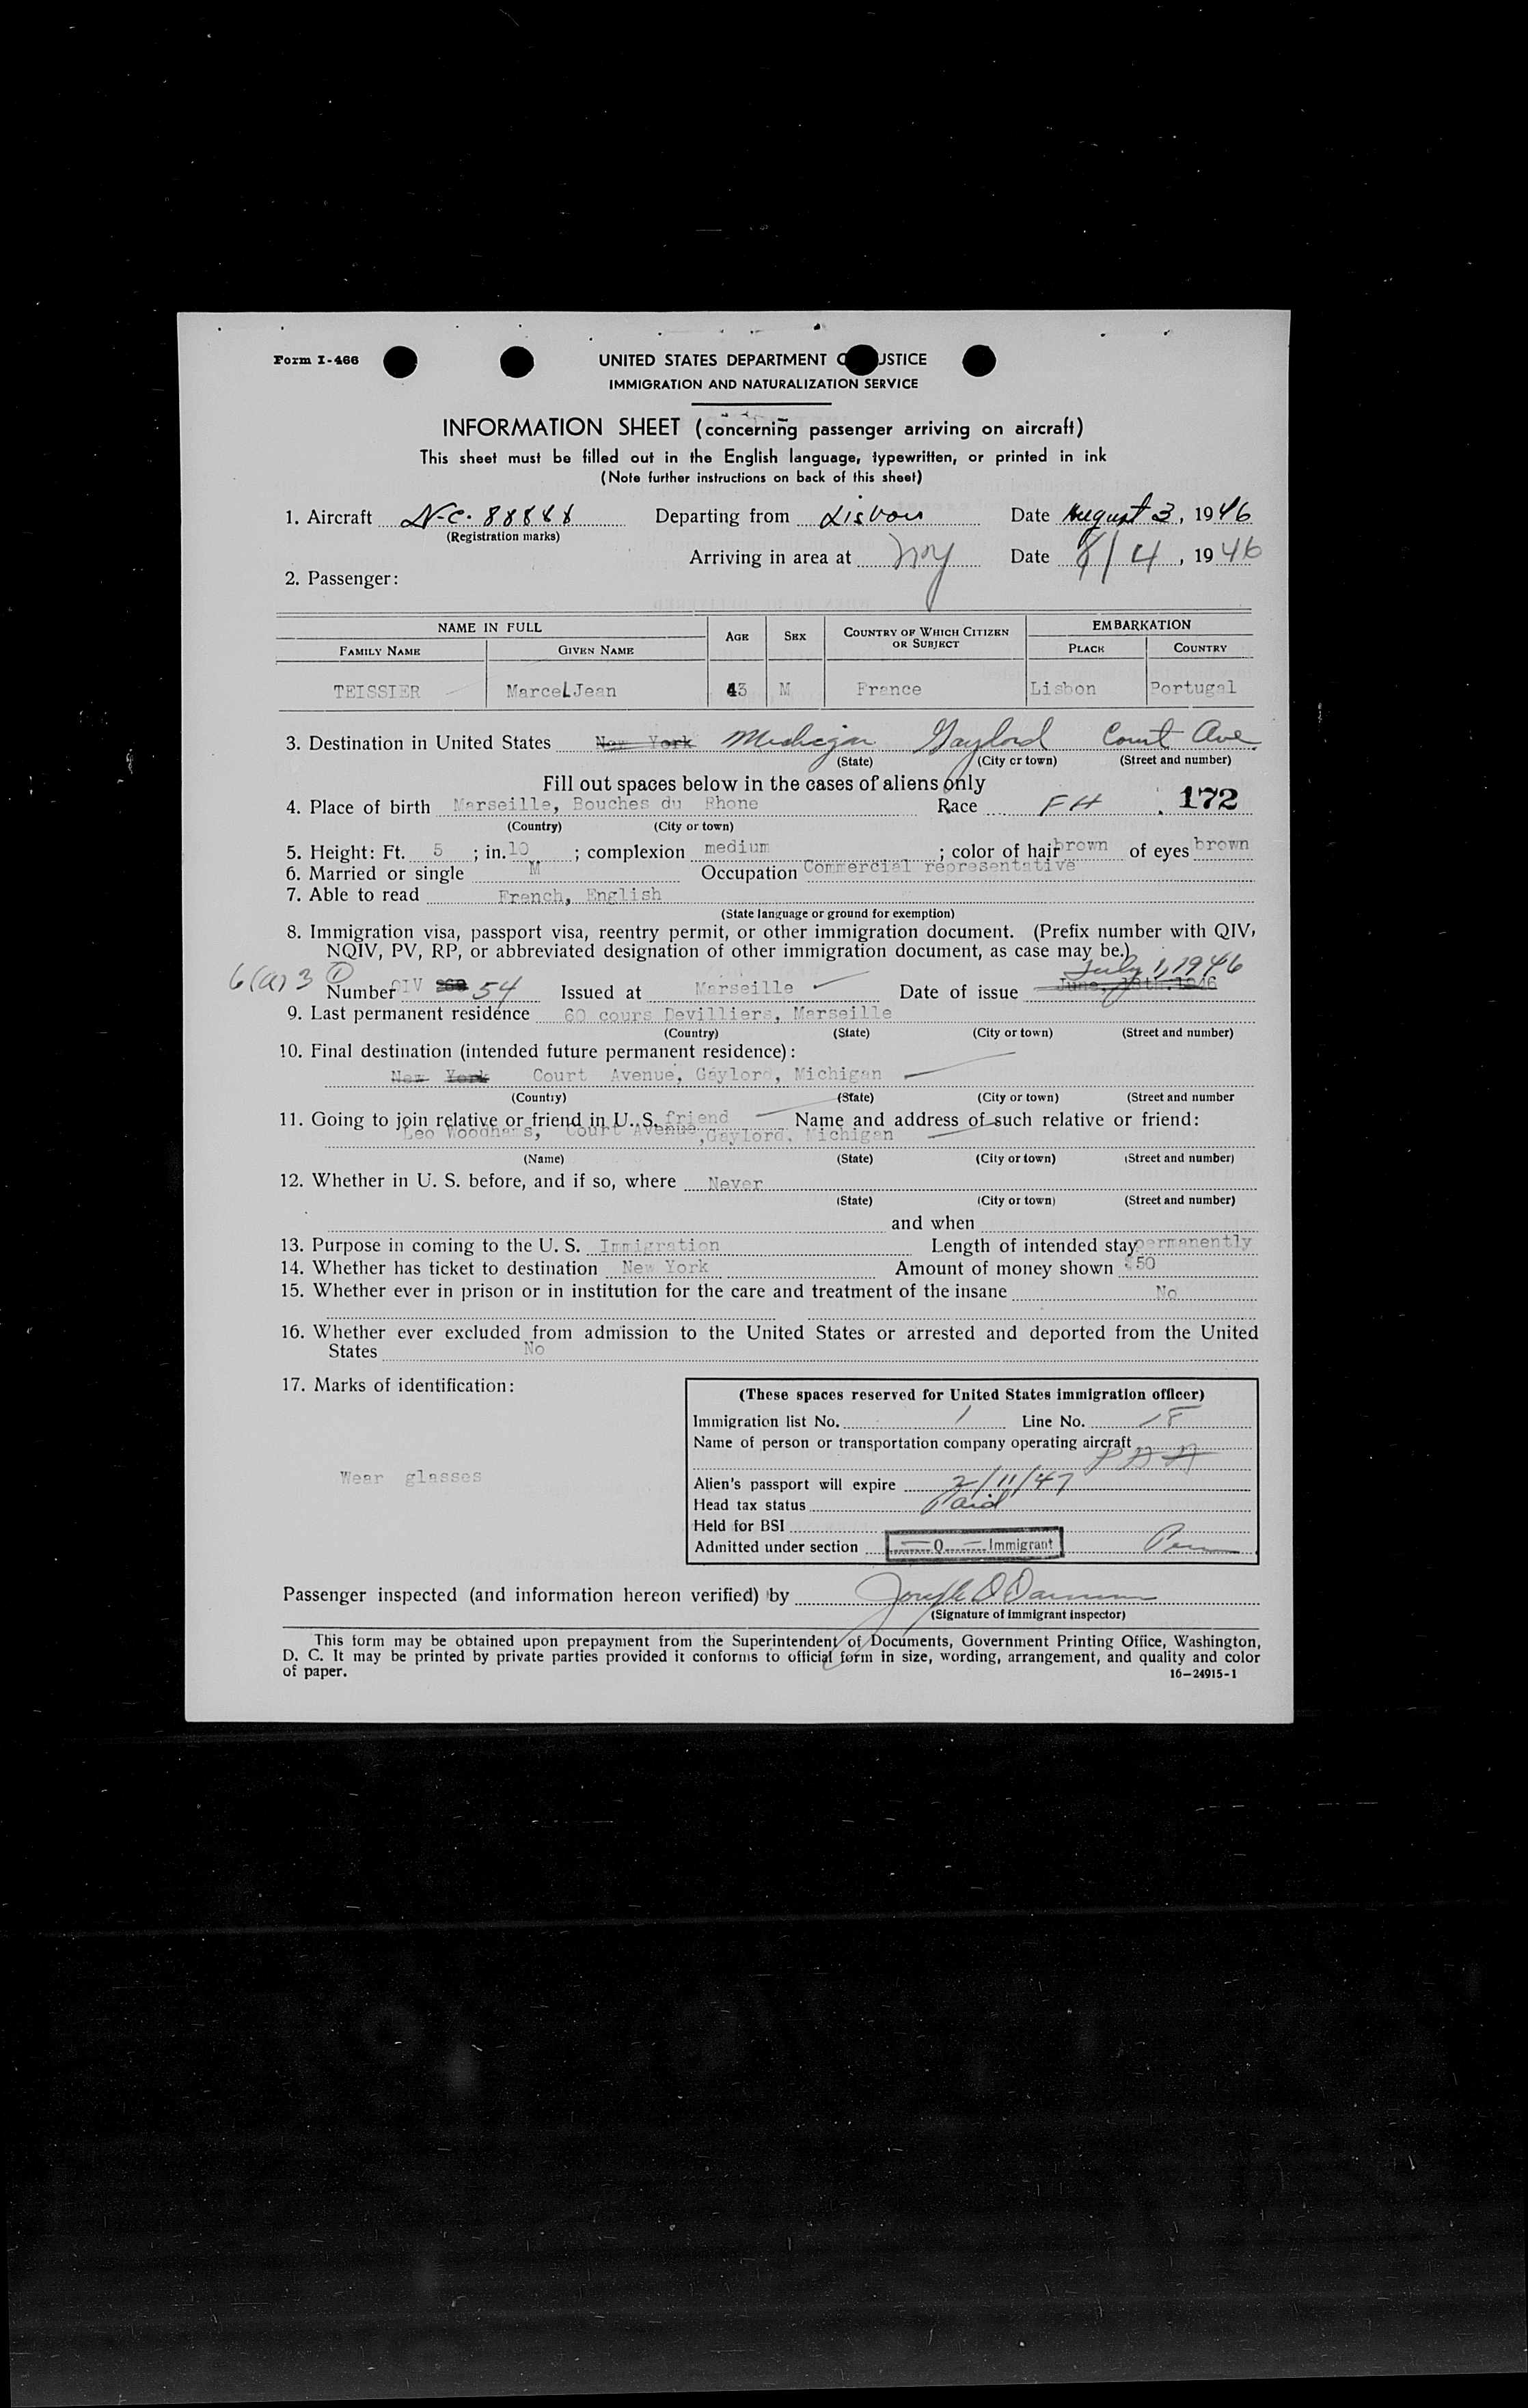 Form I-466
UNITED STATES DEPARTMENT O USTICE
IMMIGRATION AND NATURALIZATION SERVICE
INFORMATION SHEET (concerning passenger arriving on aircraft)
This sheet must be filled out in the English language, typewritten, or printed in ink
(Note further instructions on back of this sheet)
1. Aircraft N-C. 88888 Departing from Lisbon Date August 3, 1946
(Registration marks)
Arriving in area at NY Date 8/4, 1946
2. Passenger:
NAME IN FULL AGE SEX COUNTRY OF WHICH CITIZEN OR SUBJECT EMBARKATION
FAMILY NAME GIVEN NAME PLACE COUNTRY
TEISSIER Marcel Jean 43 M France Lisbon Portugal
3. Destination in United States New York Michigan Gaylord Court Ave.
(State) (City or town) (Street and number)
Fill out spaces below in the cases of aliens only
4. Place of birth Marseille, Bouches du Rhone Race FH 172
(Country) (City or town)
5. Height: Ft. 5 ; in. 10 ; complexion medium ; color of hair brown of eyes brown
6. Married or single M Occupation Commercial representative
7. Able to read French, English
(State language or ground for exemption)
8. Immigration visa, passport visa, reentry permit, or other immigration document. (Prefix number with QIV,
NQIV, PV, RP, or abbreviated designation of other immigration document, as case may be.)
July 1, 1946
6(a)3 ①
Number QIV 54 Issued at Marseille Date of issue
9. Last permanent residence 60 cours Devilliers, Marseille
(Country) (State) (City or town) (Street and number)
10. Final destination (intended future permanent residence):
New York Court Avenue, Gaylord, Michigan
(Country) (State) (City or town) (Street and number
11. Going to join relative or friend in U. S. friend Name and address of such relative or friend:
Leo Woodhams, Court Avenue, Gaylord, Michigan
(Name) (State) (City or town) (Street and number)
12. Whether in U. S. before, and if so, where Never
(State) (City or town) (Street and number)
and when
13. Purpose in coming to the U. S. Immigration Length of intended stay permanently
14. Whether has ticket to destination New York Amount of money shown $50
15. Whether ever in prison or in institution for the care and treatment of the insane No
16. Whether ever excluded from admission to the United States or arrested and deported from the United
States No
17. Marks of identification:
Wear glasses
(These spaces reserved for United States immigration officer)
Immigration list No. 1 Line No. 18
Name of person or transportation company operating aircraft
PAA
Alien's passport will expire 2/11/47
Head tax status Paid
Held for BSI
Admitted under section Q Immigrant
Passenger inspected (and information hereon verified) by
(Signature of immigrant inspector)
This form may be obtained upon prepayment from the Superintendent of Documents, Government Printing Office, Washington,
D. C. It may be printed by private parties provided it conforms to official form in size, wording, arrangement, and quality and color
of paper. 16-24915-1